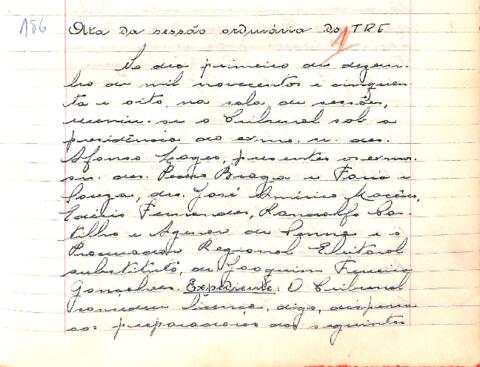 186 Ata da sessão ordinária do TRE
1
No dia primeiro de dezem-
bro de mil novecentos e cinquen-
ta e oito, na sala de sessões,
reuniu-se o Tribunal sob a
presidência do exmo. sr. des.
Afonso Lages, presentes os exmos.
srs. des. Pedro Braga e Faria e
Souza, drs. José Américo Macêdo,
Fernandes, Randolfo Cas-
tilho e de Senna e o
Procurador Regional Eleitoral
substituto, dr. Joaquim Ferreira
Gonçalves. Expediente: O Tribunal
concedeu licença, digo, dispensa
aos preparadores das seguintes